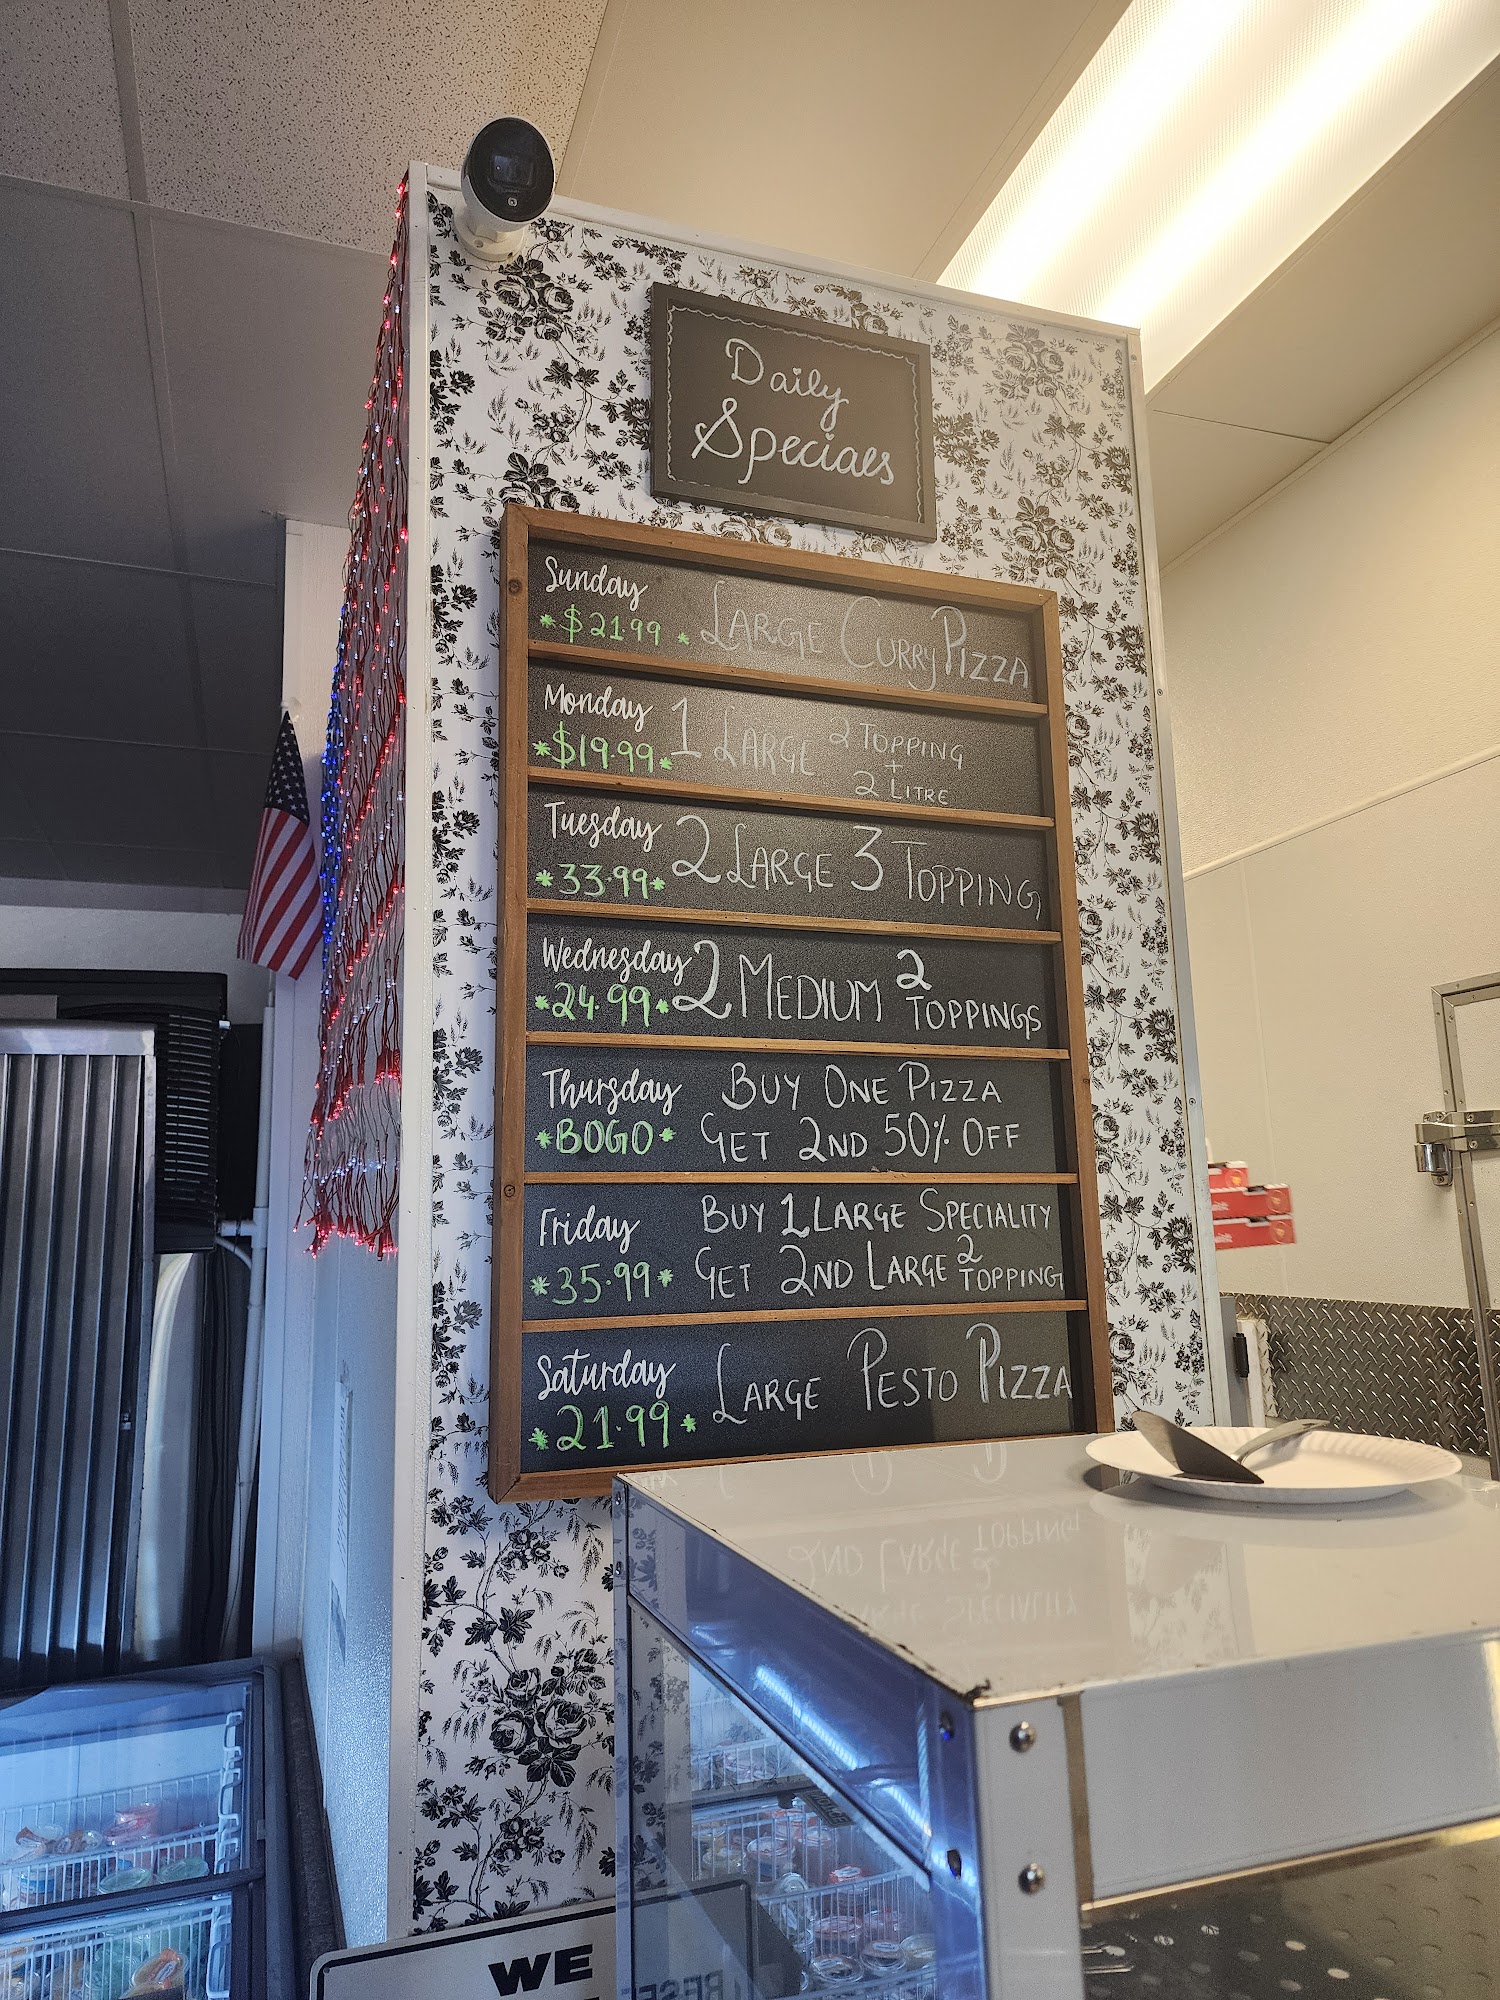 Daily
Specials
Sunday
*$21.99*
LARGE CURRY PIZZA
Monday
*$19.99*
1 LARGE 2 TOPPING
+
2 LITRE
Tuesday
*33.99*
2 LARGE 3 TOPPING
Wednesday
*24.99*
2 MEDIUM 2
TOPPINGS
Thursday
*BOGO*
BUY ONE PIZZA
GET 2ND 50% OFF
Friday
*35.99*
BUY 1 LARGE SPECIALITY
GET 2ND LARGE 2
TOPPING
Saturday
*21.99*
LARGE PESTO PIZZA
WE